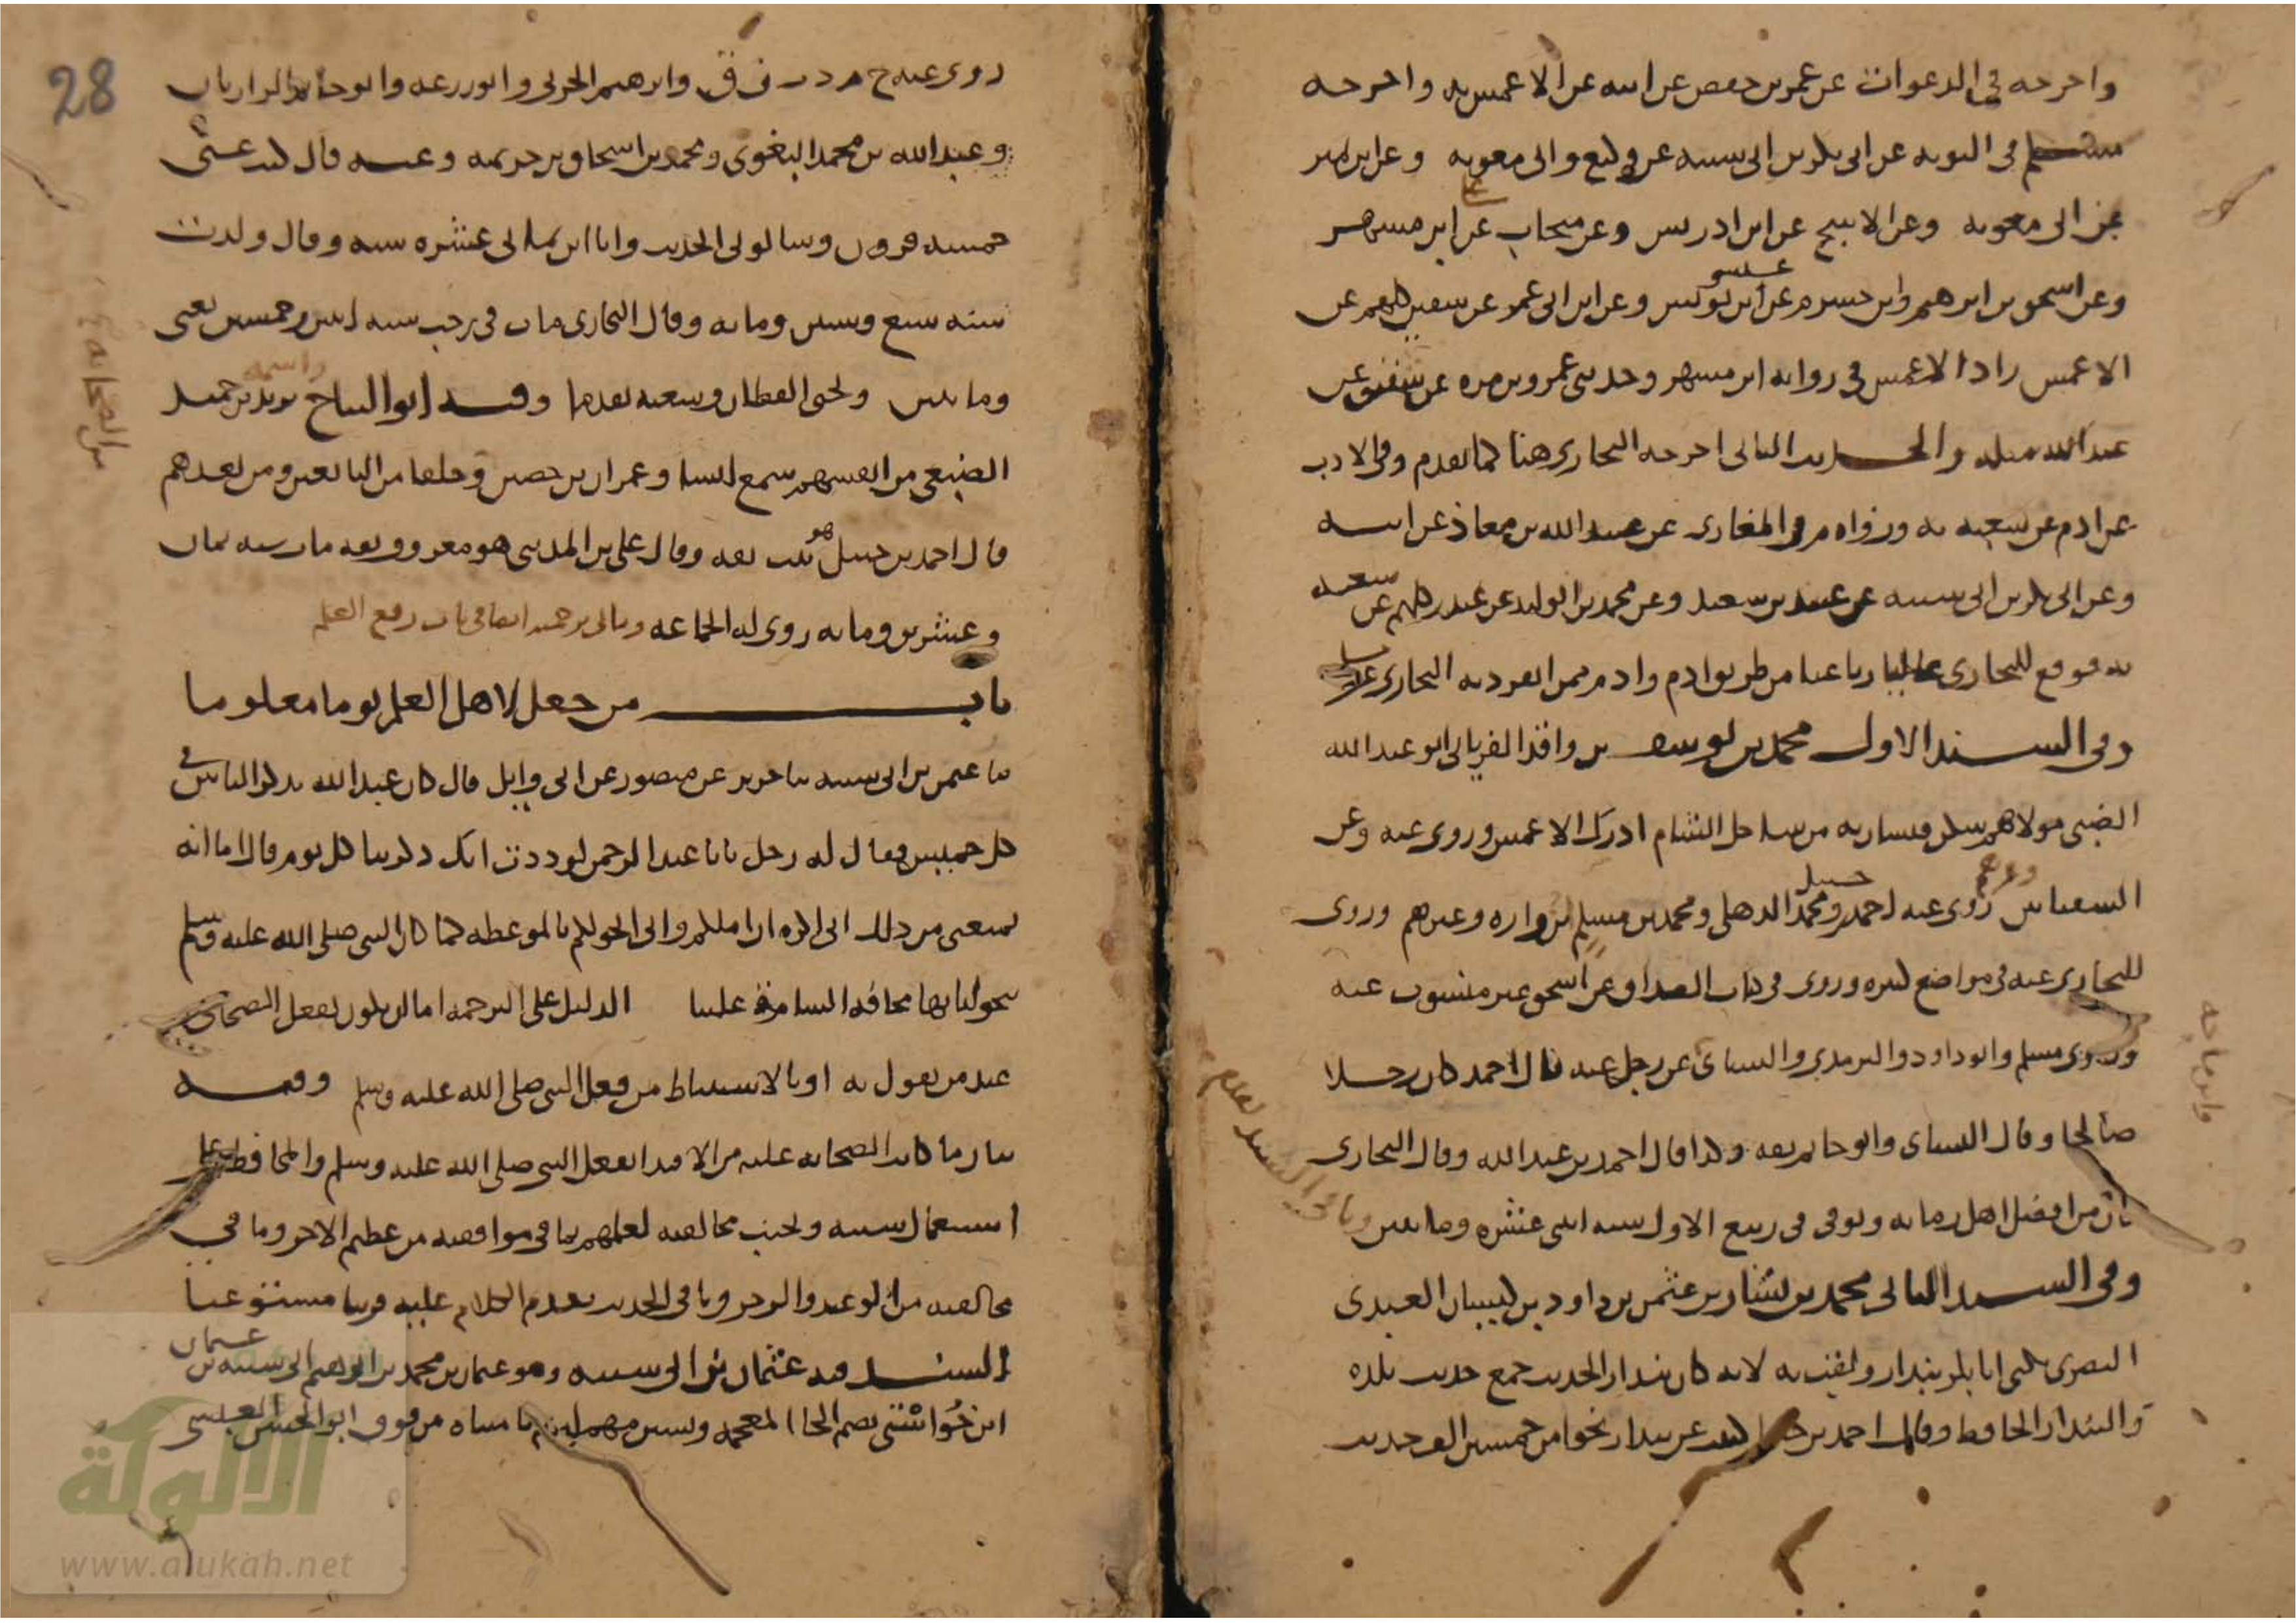 واخرجه في الدعوات عن عمر بن حفص عن ابيه عن الاعمش به واخرجه
مسلم في التوبه عن ابي بكر بن ابي شيبه عن وكيع وابي معويه وعن ابن نمير
عن ابي معويه وعن الاشج عن ابن ادريس وعن منجاب عن ابن مسهر
وعن اسحق بن ابرهيم وابن خشرم عن عيسى بن يونس وعن ابن ابي عمر عن سفين كلهم عن
الاعمش زاد الاعمش في روايه ابن مسهر وحدثني عمرو بن مره عن شقيق عن
عبد الله مثله والحديث الثاني اخرجه البخاري هنا كما تقدم وفي الادب
عن ادم عن شعبه به ورواه م في المغازي عن عبيد الله بن معاذ عن ابيه
وعن ابي بكر بن ابي شيبه عن عبيد بن سعيد وعن محمد بن الوليد عن غندر كلهم عن شعبه
به فوقع للبخاري عاليا رباعيا من طريق ادم وادم ممن انفرد به البخاري عن مسلم
وفي السند الاول محمد بن يوسف بن واقد الفريابي ابو عبد الله
الضبي مولاهم سكن قيساريه من ساحل الشام ادرك الاعمش وروى عنه وعن
السفيانين وغيرهم روى عنه احمد بن حنبل ومحمد الذهلي ومحمد بن مسلم بن واره وغيرهم وروى
للبخاري عنه في مواضع كثيره وروى في كتاب الصداق عن اسحق غير منسوب عنه
وروى مسلم وابو داود والترمذي والنسائي عن رجل عنه قال احمد كان رجلا
وابن ماجه
صالحا وقال النسائي وابو حاتم ثقه وكذا قال احمد بن عبد الله وقال البخاري
كان من افضل اهل زمانه وتوفي في ربيع الاول سنه اثنتي عشره ومائتين وباقي السند تقدم
وفي السند الثاني محمد بن بشار بن عثمن بن داود بن كيسان العبدي
البصري يكنى ابا بكر بندار ولقب به لانه كان بندار الحديث جمع حديث بلده
والبندار الحافظ وقال احمد بن كتبت عن بندار نحوا من خمسين الف حديث
28
روى عنه خ م د ت ن ق وابرهيم الحربي وابو زرعه وابو حاتم الرازيان
وعبد الله بن محمد البغوي ومحمد بن اسحاق بن خزيمه وعنه قال كتب عني
خمسه قرون وسالوني الحديث وانا ابن ثماني عشره سنه وقال ولدت
سنه سبع وستين ومائه وقال البخاري مات في رجب سنه اثنتين وخمسين يعني
ومائتين ويحيى القطان وشعبه تقدما وفيه ابو التياح واسمه يزيد بن حميد
الضبعي من انفسهم سمع انسا وعمران بن حصين وخلقا من التابعين ومن بعدهم
من الصحابه
قال احمد بن حنبل هو ثبت ثقه وقال علي بن المديني هو معروف ثقه مات سنه ثمان
وعشرين ومائه روى له الجماعه وياتي بن حميد ايضا في باب رفع العلم
باب من جعل لاهل العلم يوما معلوما
ثنا عثمن بن ابي شيبه ثنا جرير عن منصور عن ابي وايل قال كان عبد الله يذكر الناس في
كل خميس فقال له رجل يا ابا عبد الرحمن لوددت انك ذكرتنا كل يوم قال اما انه
يمنعني من ذلك اني اكره ان املكم واني اتخولكم بالموعظه كما كان النبي صلى الله عليه وسلم
يتخولنا بها مخافه السامة علينا الدليل على الترجمه اما ان يكون بفعل الصحابي
عند من يقول به او بالاستنباط من فعل النبي صلى الله عليه وسلم وفيه
بيان ما كانت الصحابه عليه من الاقتدا بفعل النبي صلى الله عليه وسلم والمحافظه على
استعمال سننه وتجنب مخالفته لعلمهم بما في موافقته من عظيم الاجر وما في
مخالفته من الوعيد والزجر وباقي الحديث تقدم الكلام عليه قريبا مستوعبا
السند فيه عثمان بن ابي شيبه وهو عثمان بن محمد بن ابرهيم ابي شيبه بن عثمان
ابن خُواستى بضم الخا المعجمه وسين مهمله ثم تا مثناه من فوق ابو الحسن العبسي
الألوكة
www.alukah.net